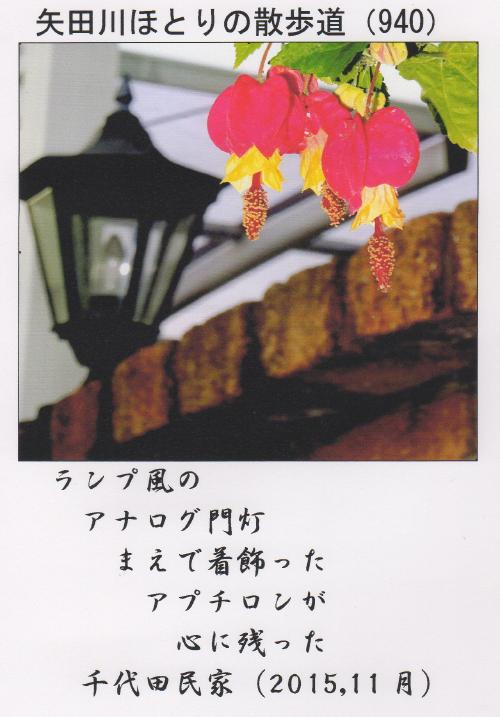 矢田川ほとりの散歩道（940）
ランプ風の
アナログ門灯
まえで着飾った
アプチロンが
心に残った
千代田民家（2015,11月）